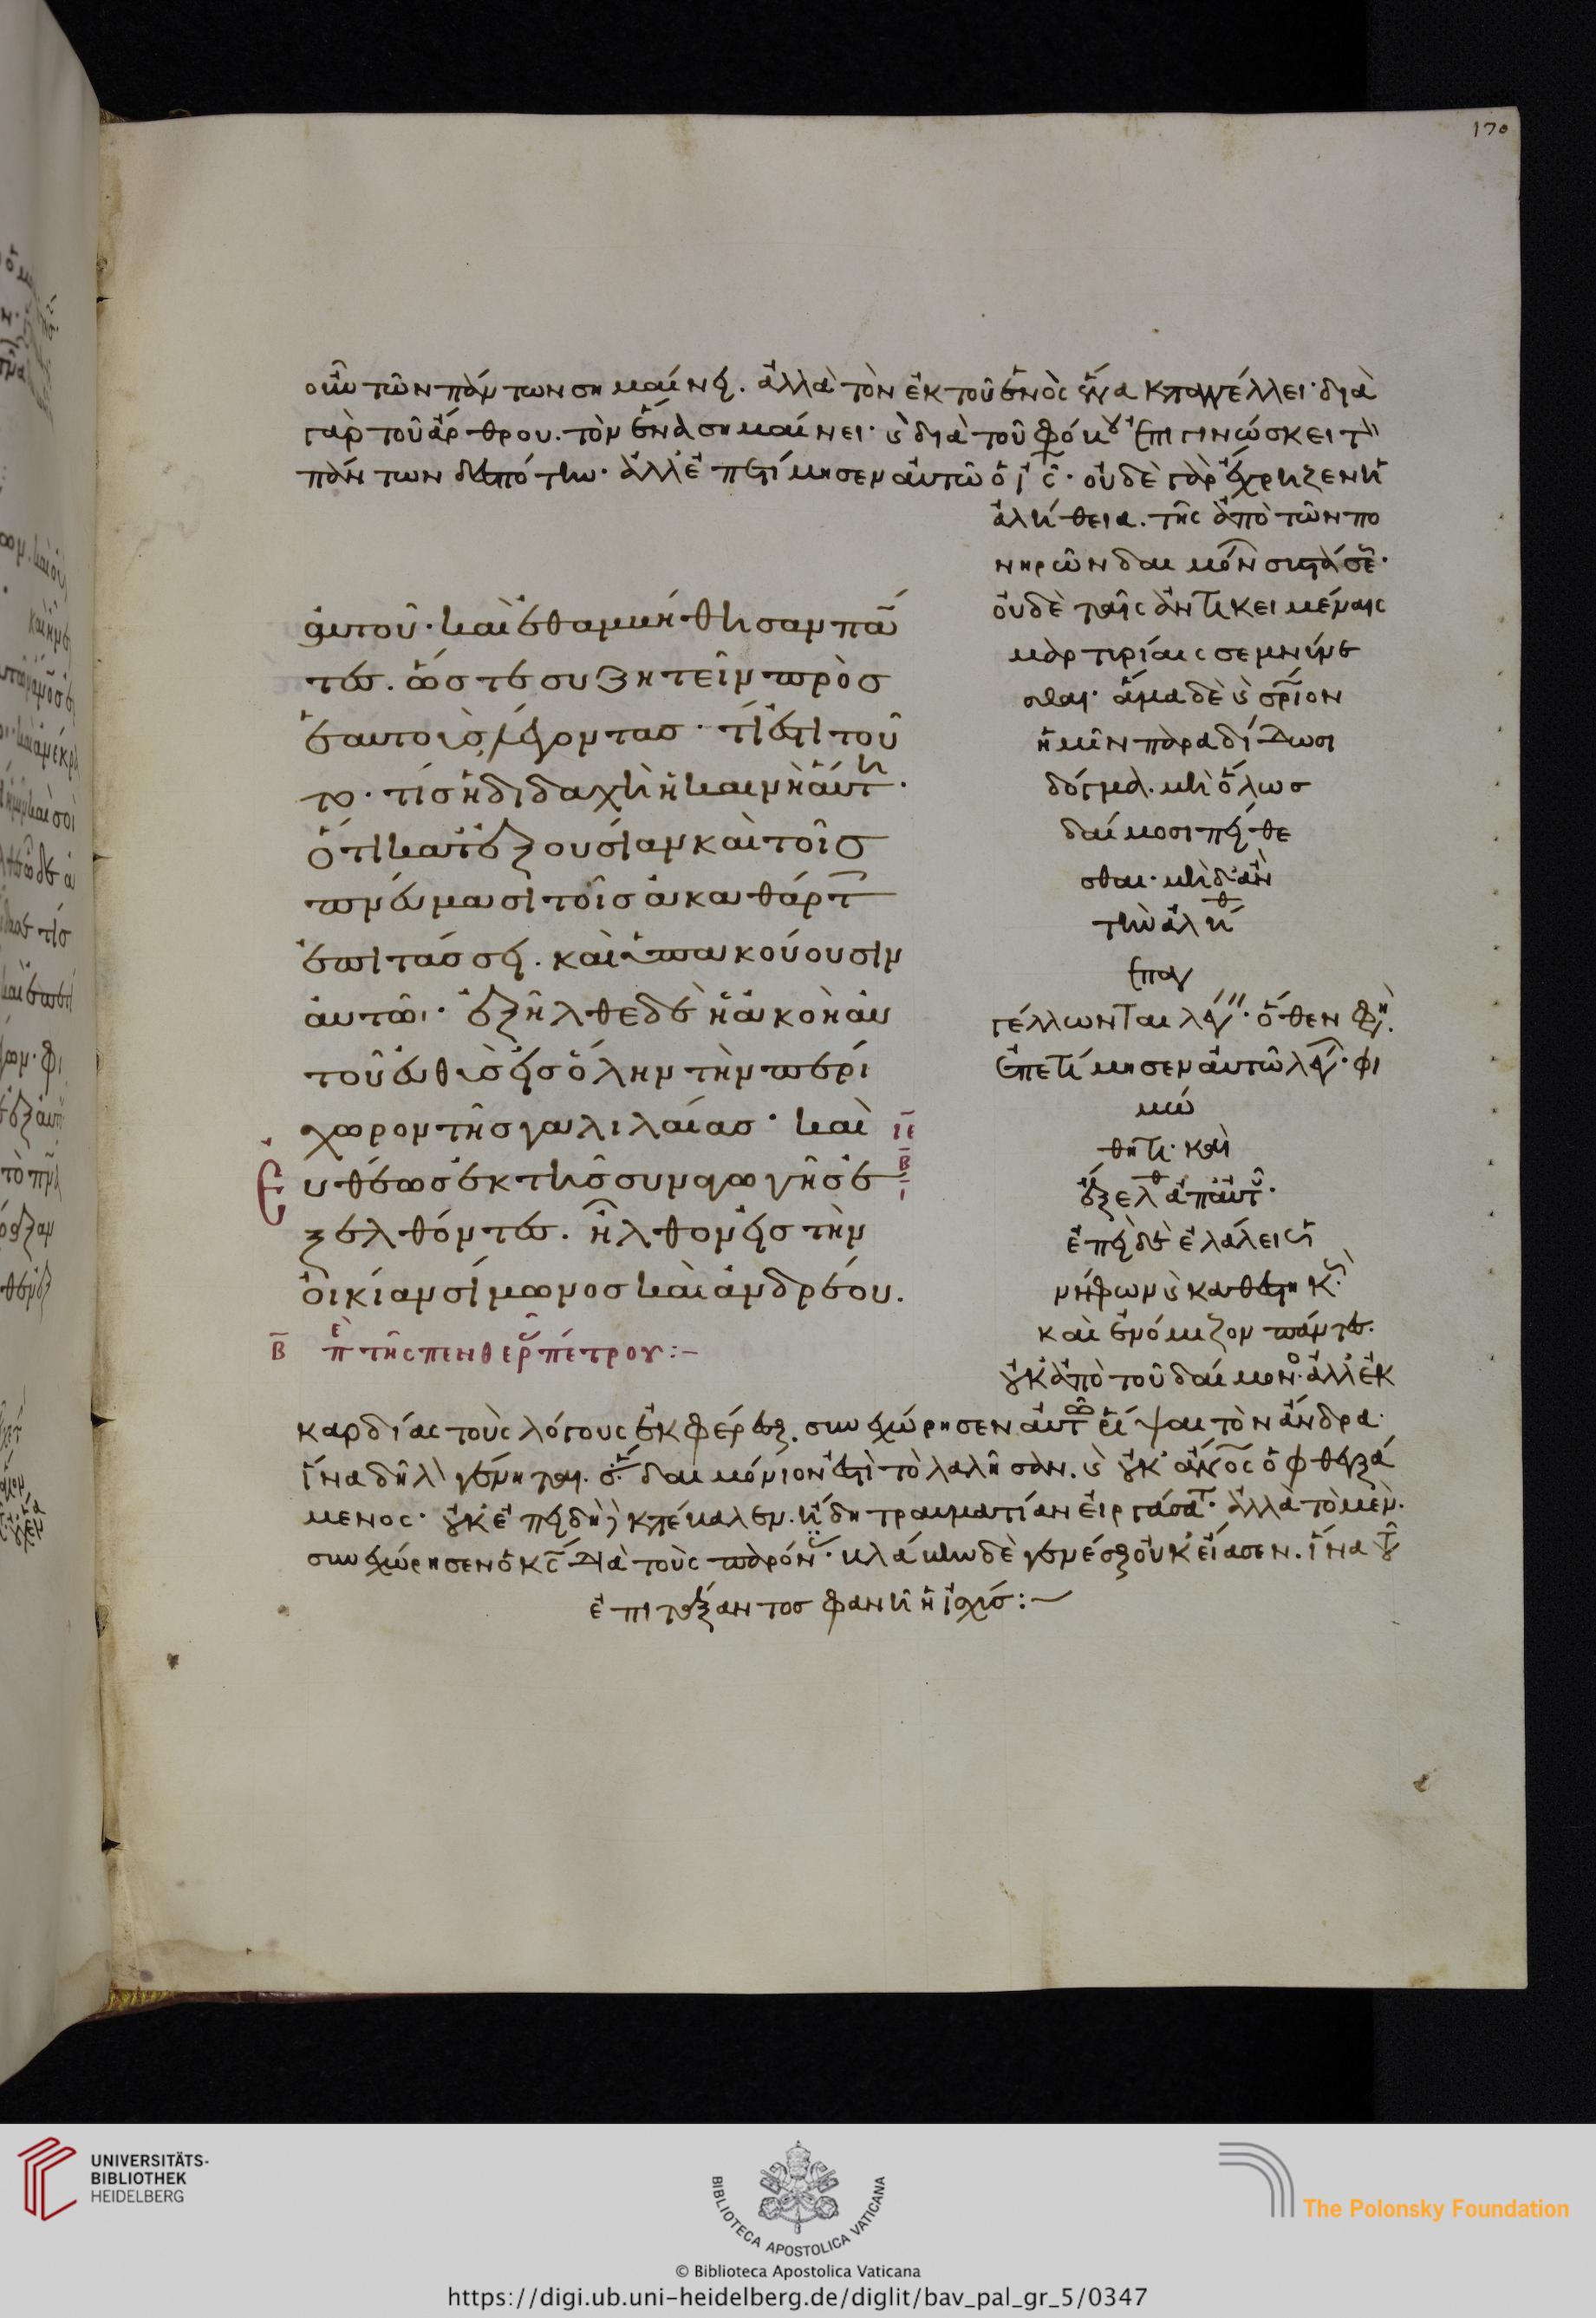 170
οὖν τῶν πάντων σημαίνει. ἀλλὰ τὸν ἐκ τοῦ ἑνὸς ἕνα καταγγέλλει· διὰ
γὰρ τοῦ ἄρθρου. τὸν ἕνα σημαίνει· καὶ διὰ τοῦ φόβου ἐπιγινώσκει τὸν
πάντων δεσπότην· ἀλλ' ἐπετίμησεν αὐτῶ ὁ ις· οὐδὲ γὰρ ἔχρηζεν ἡ
ἀλήθεια. τῆς ἀπὸ τῶν πο
νηρῶν δαιμόνων συστάσεως·
οὐδὲ ταῖς ἀντικειμέναις
μαρτυρίαις σεμνύνε
σθαι· ἅμα δὲ καὶ σριον
ἡμῖν παραδίδωσι
δόγμα. μὴ ὅλως
δαίμοσι πείθε
σθαι. μηδ' ἂν
τὴν ἀλήθ
ἐπαγ
γέλλωνται λέγειν· ὅθεν φη.
ἐπετίμησεν αὐτῶ λέγων· φι
μώ
θητι· καὶ
ἔξελθ ἀπ' αὐτοῦ·
ἐπειδὴ ἐλάλει ὡς
νήφων καὶ καθεστηκώς
καὶ ἐνόμιζον πάντες.
οὐκ ἀπὸ τοῦ δαίμονος. ἀλλ' ἐκ
αὐτοῦ· καὶ ἐθαμβήθησαν πάν
τες. ὥστε συζητεῖν πρὸσ
ἑαυτοὺς λέγοντασ· τί ἐστι τοῦ
το· τίσ ἡ διδαχὴ ἡ καινὴ αὕτη·
ὅτι κατ' ἐξουσίαν καὶ τοῖσ
πνεύμασι τοῖσ ἀκαθάρτ
ἐπιτάσσει. καὶ ὑπακούουσιν
αὐτῶι· ἐξῆλθε δὲ ἡ ἀκοὴ αὐ
τοῦ εὐθὺς εἰσ ὅλην τὴν περί
χωρον τῆσ γαλιλαίασ· καὶ
ιε
β
ι
Ευθέωσ ἐκ τῆς συναγωγῆσ ἐ
ξελθόντες. ἦλθον εἰσ τὴν
οἰκίαν σίμωνοσ καὶ ἀνδρέου.
β πε τῆς πενθερ πέτρου:–
καρδίας τοὺς λόγους ἐκφέρειν. συνεχώρησεν αὐτῶ ῥίψαι τὸν ἄνδρα·
ἵνα δῆλ γένηται. ὅτι δαιμόνιον ἐστὶ τὸ λαλῆσαν. καὶ οὐκ ανος ὁ φθεγξά
μενος· οὐκ ἐπειδὴ κπέβαλεν. ἤδη τραυματίαν εἰργάσατ· ἀλλὰ τὸ μὲν.
συνεχώρησεν ὁ κς διὰ τοὺς παρόν. βλάβην δὲ γενέσθαι οὐκ εἴασεν. ἵνα τοῦ
ἐπιτάξαντοσ φανῆ ἡ ἰσχύσ:–
UNIVERSITÄTS-
BIBLIOTHEK
HEIDELBERG
BIBLIOTECA APOSTOLICA VATICANA
The Polonsky Foundation
© Biblioteca Apostolica Vaticana
https://digi.ub.uni-heidelberg.de/diglit/bav_pal_gr_5/0347